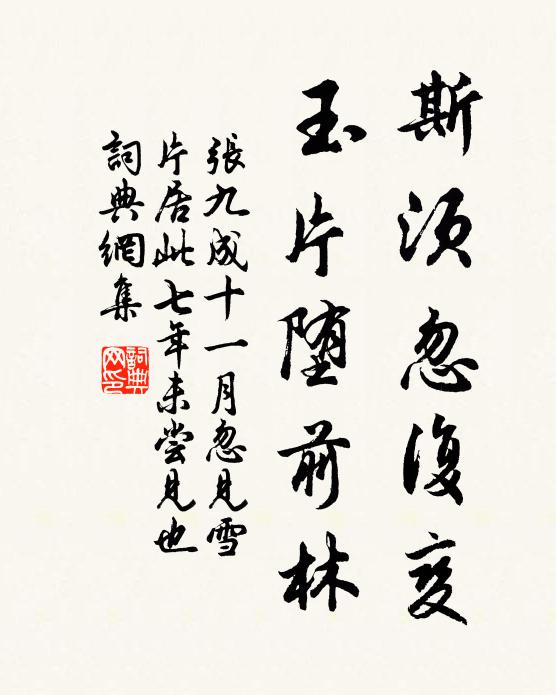 斯须忽復变
玉片堕前林
張九成十一月忽見雪
片居此七年未尝見也
詞典網集
詞典网印